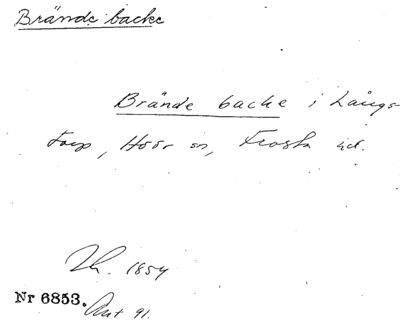 Brände backe
Brände backe i Långs-
torp, Höör sn, Frosta hd.
1854
Nr 6853.
91.